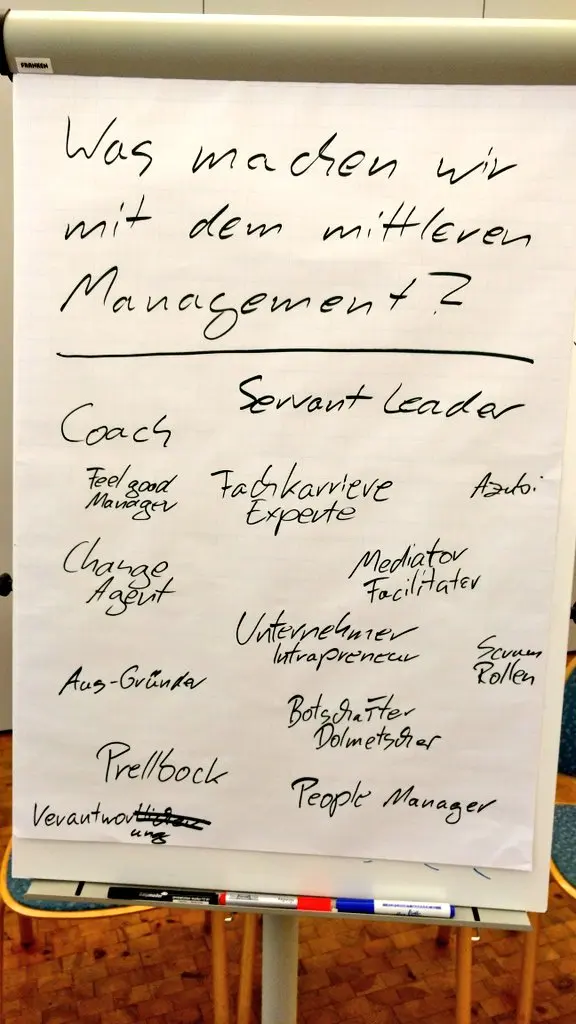 FRANKEN
Was machen wir
mit dem mittleren
Management?
Servant Leader
Coach
Feelgood
Manager
Fachkarriere
Experte
Azubi
Change
Agent
Mediator
Facilitater
Unternehmer
Intrapreneur
Scrum
Rollen
Aus-Gründer
Botschafter
Dolmetscher
Prellbock
People Manager
Verantwort
ung